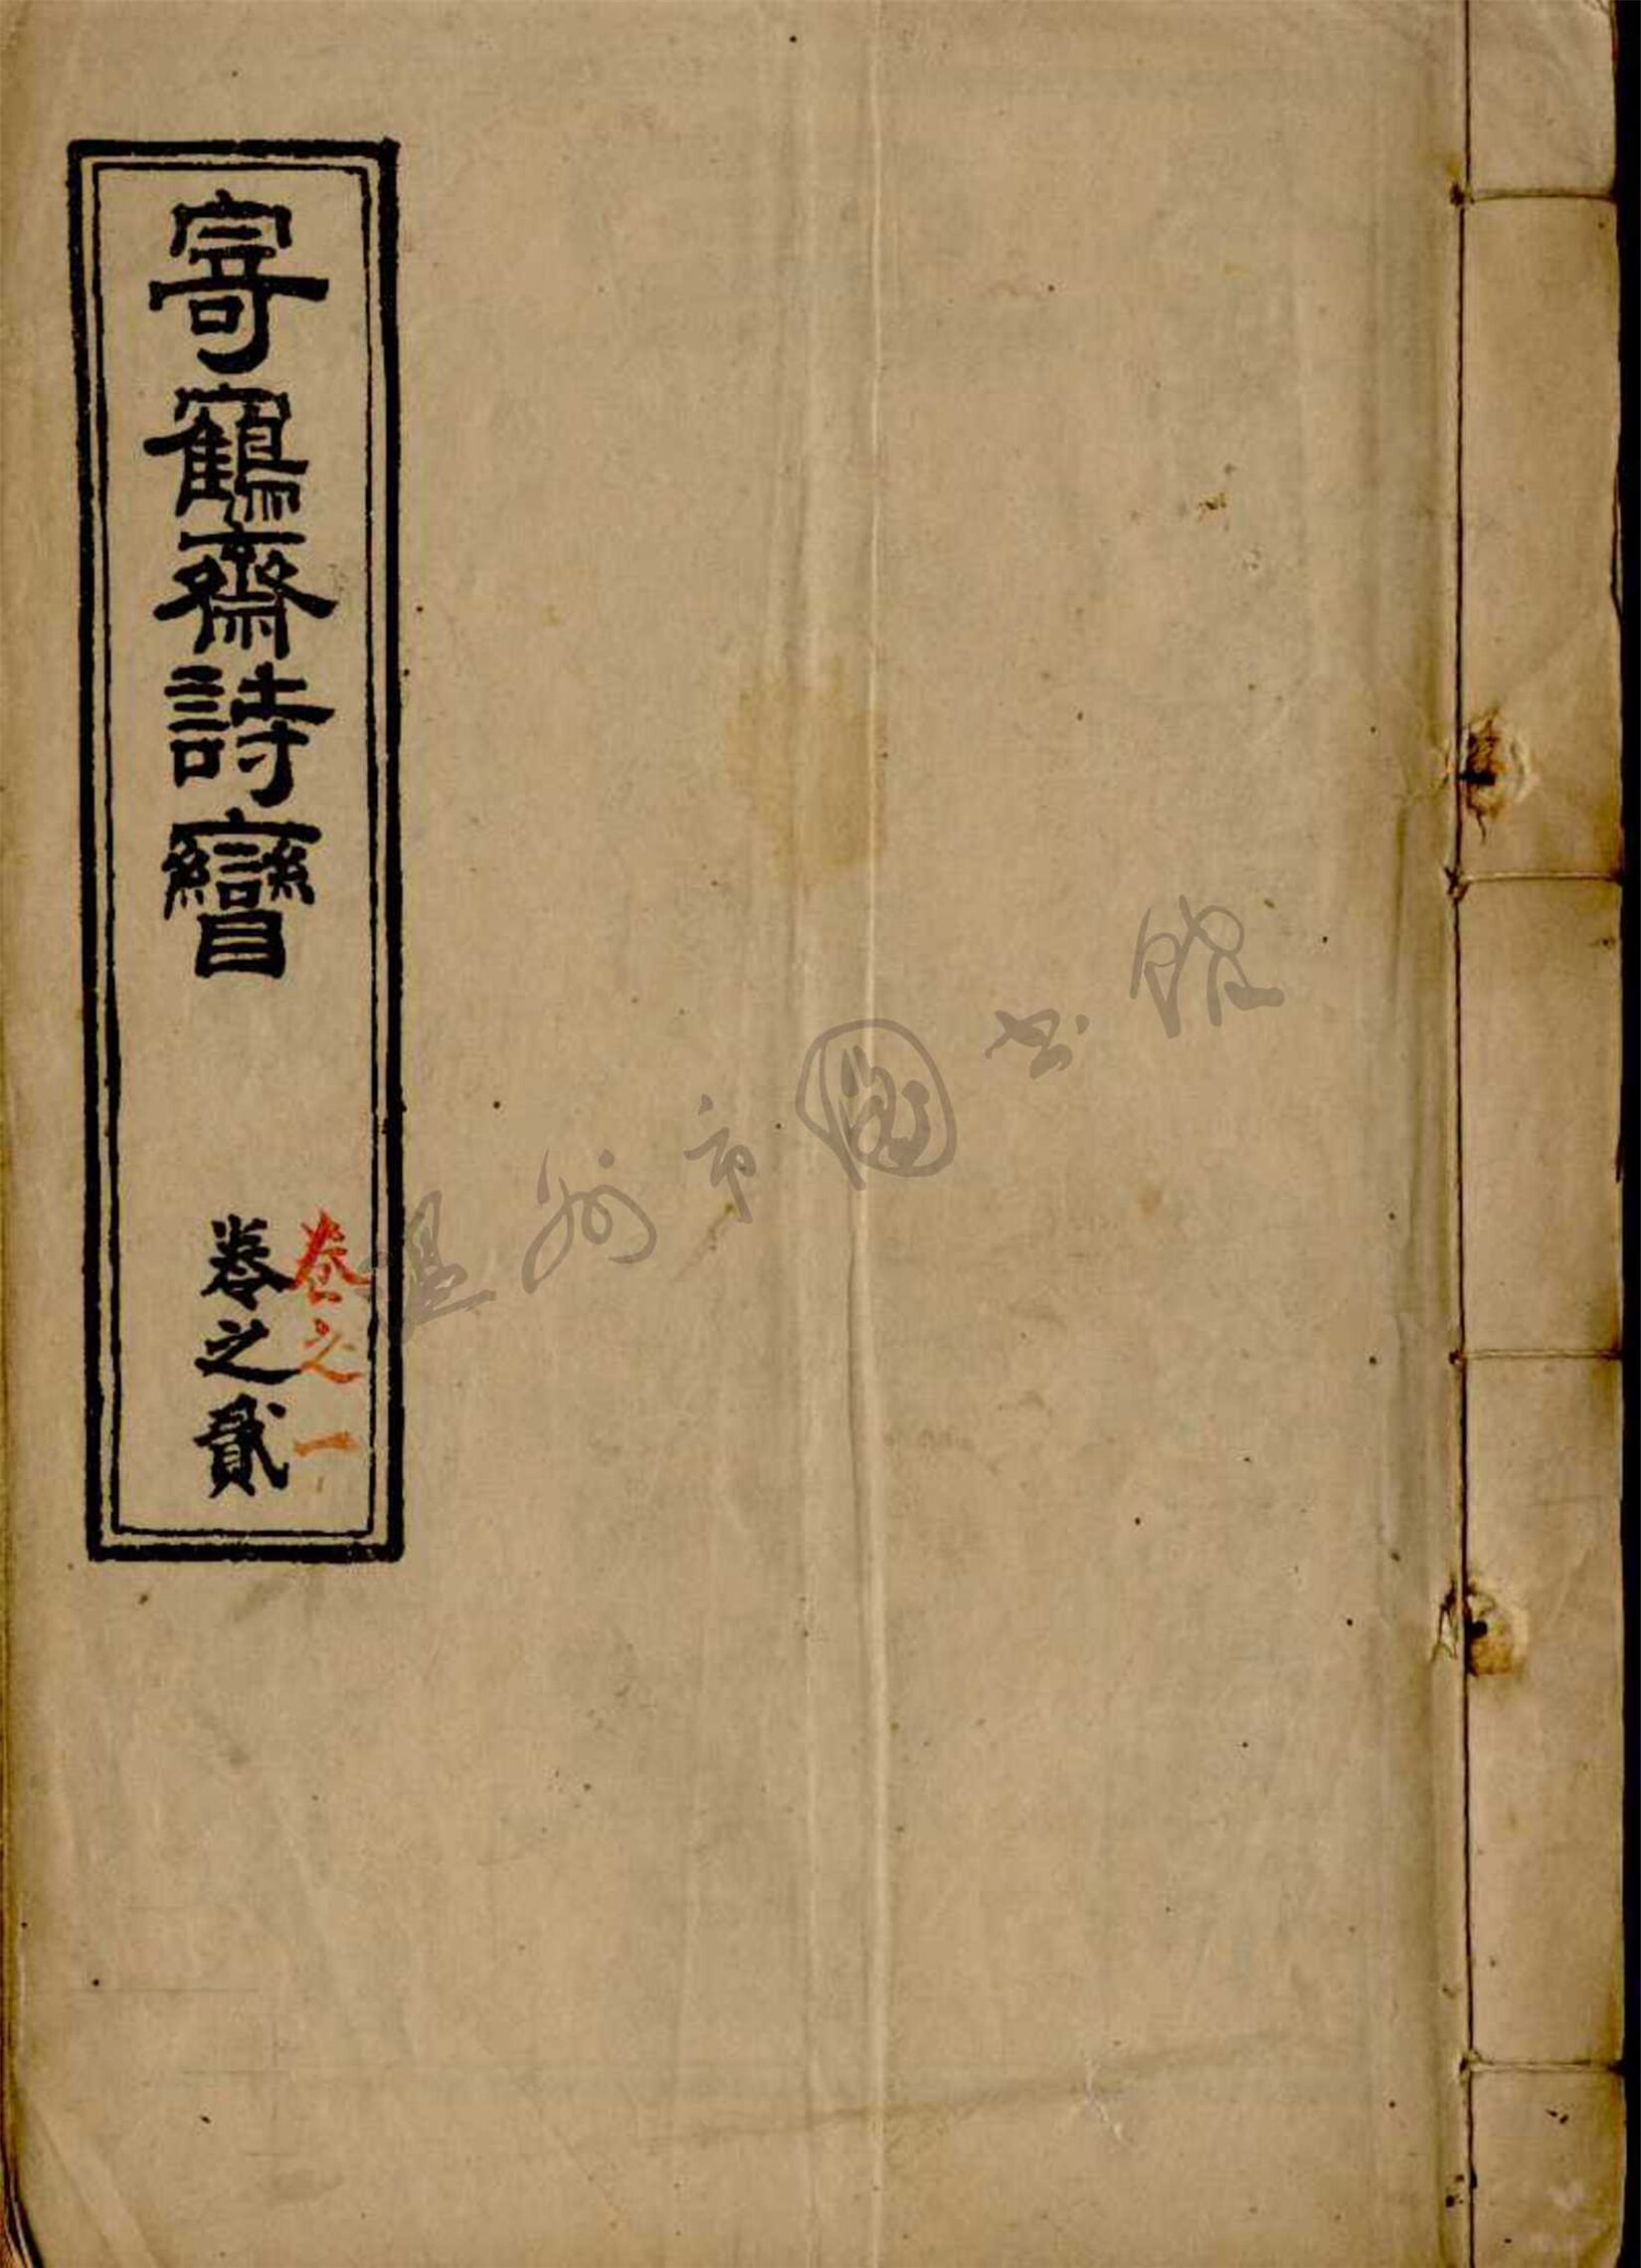 寄鶴齋詩矕
卷之一
卷之貳
温州市圖书馆